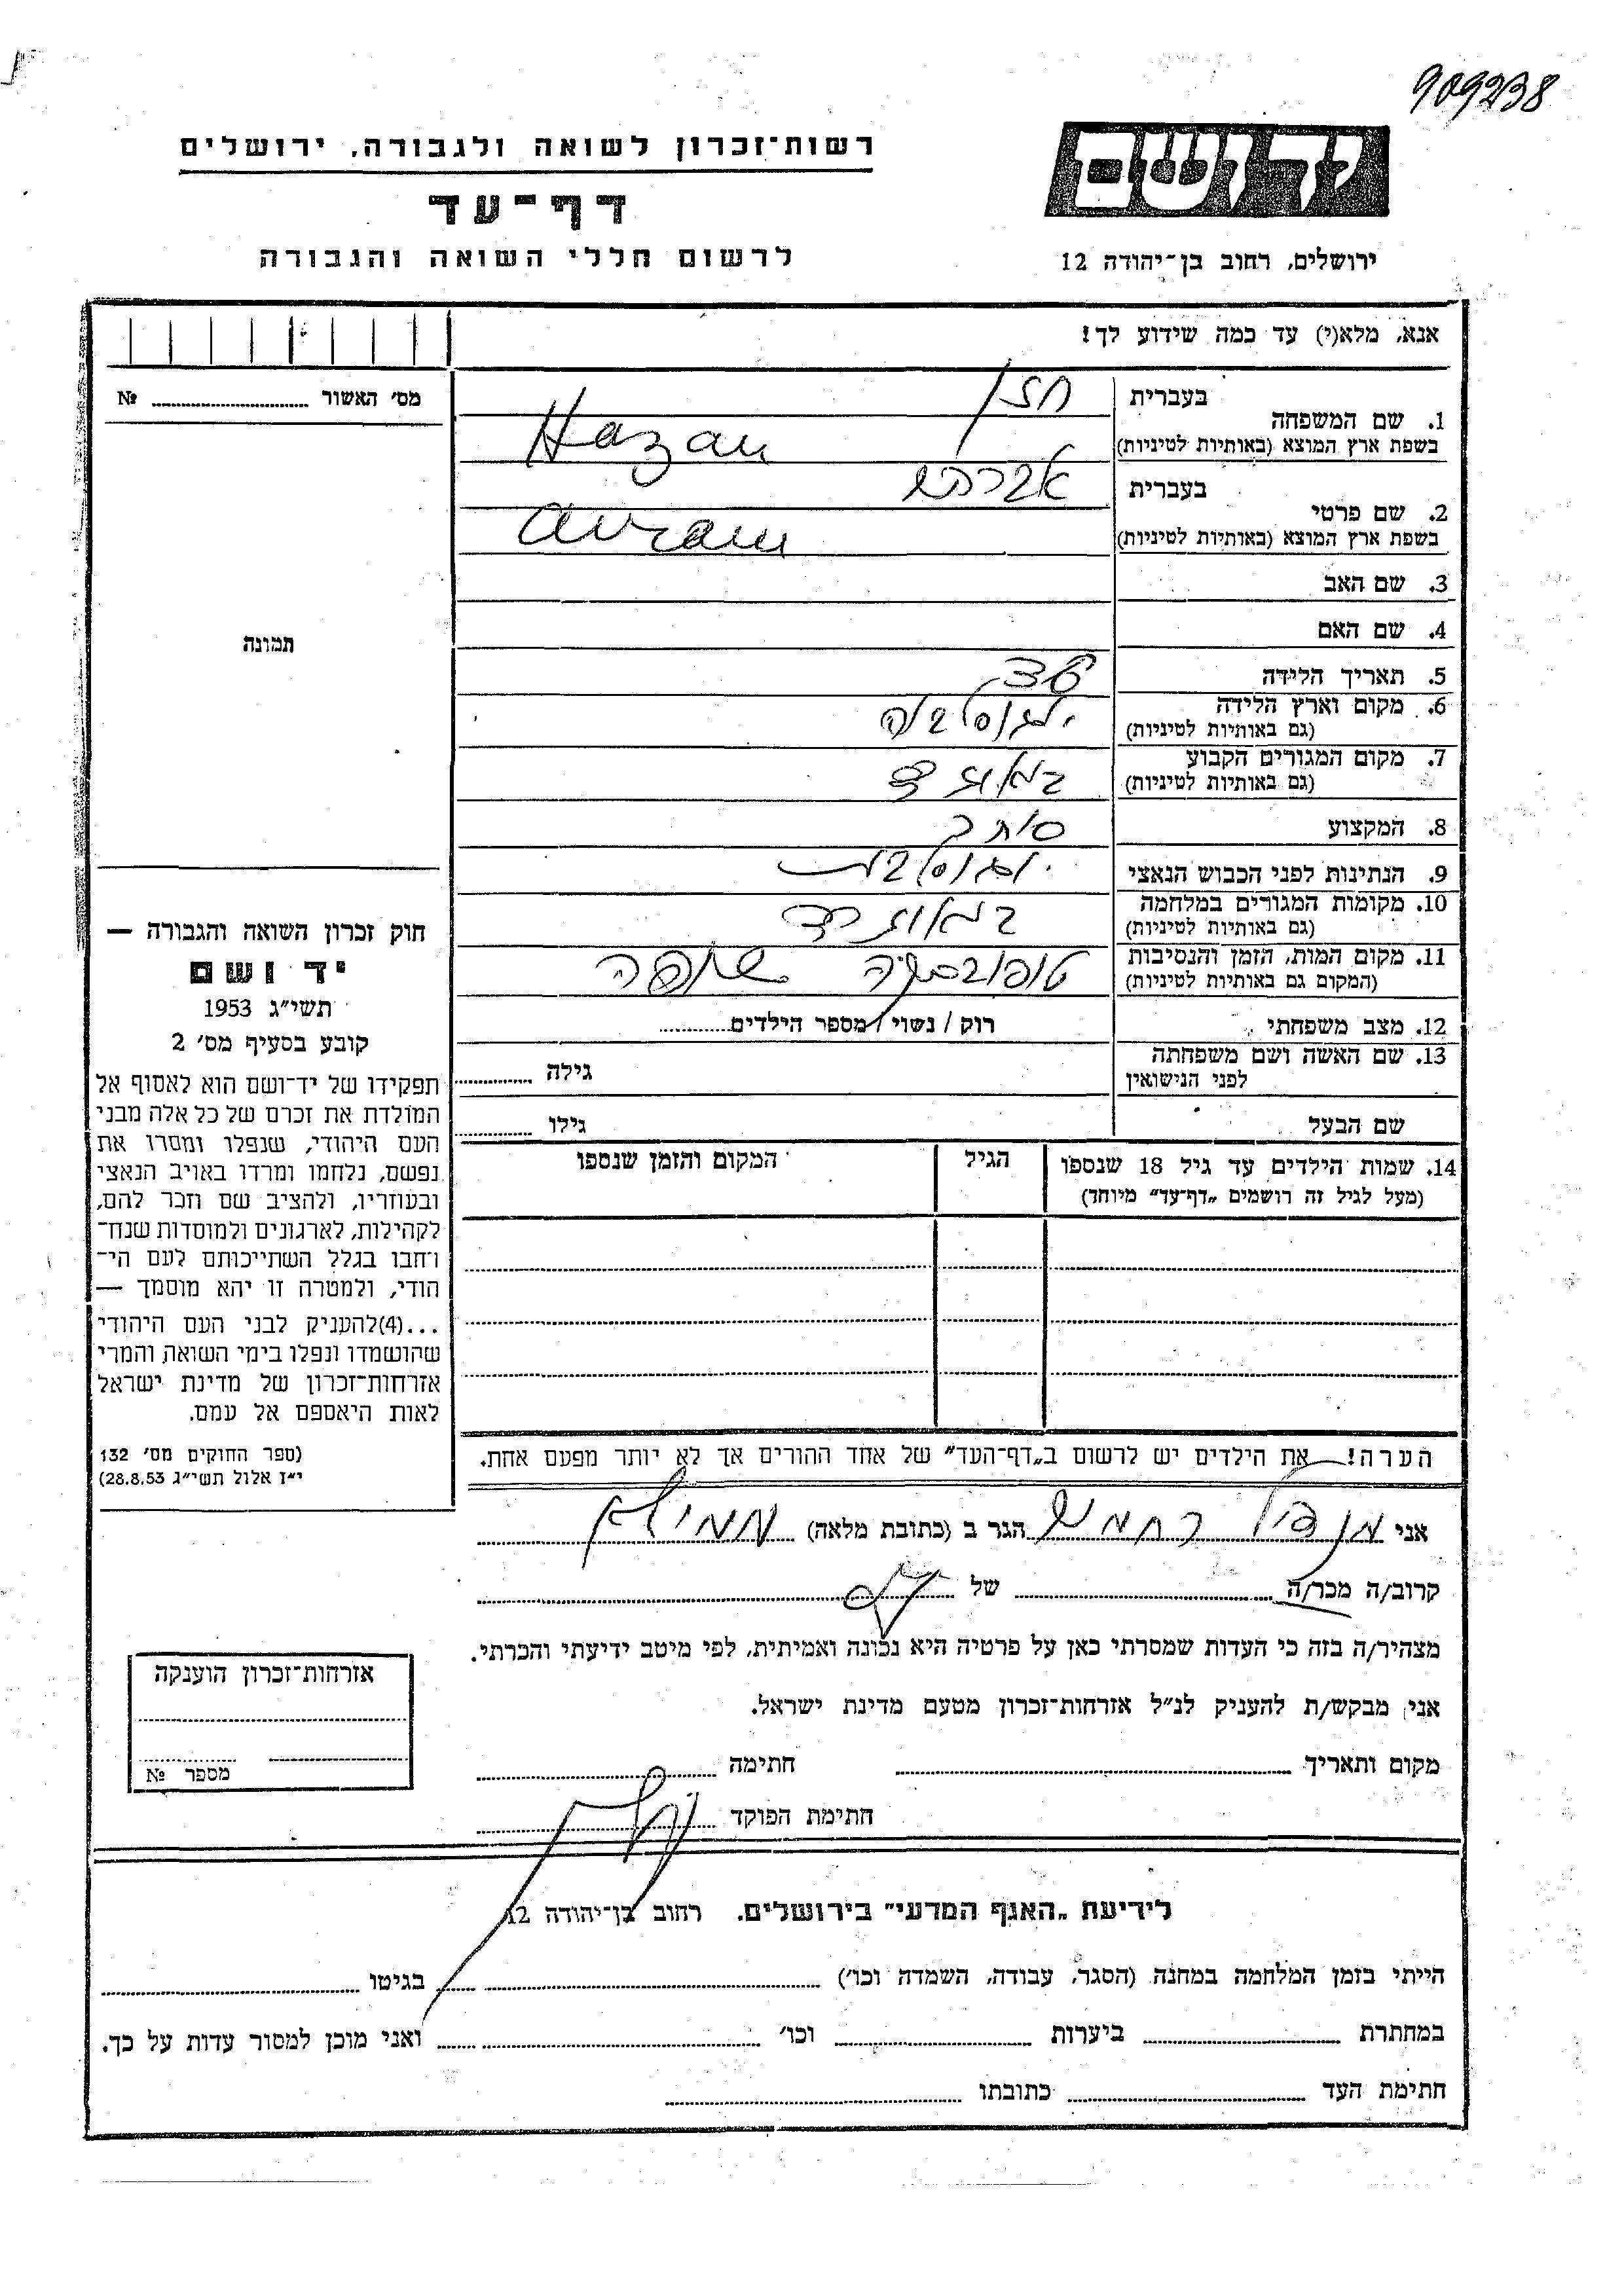 909238
יד ושם
ירושלים, רחוב בן־יהודה 12
רשות־זכרון לשואה ולגבורה, ירושלים
דף־עד
לרשום חללי השואה והגבורה
אנא, מלא(י) עד כמה שידוע לך!
מס׳ האשור № 
1. שם המשפחה
בעברית חזן
בשפת ארץ המוצא (באותיות לטיניות) Hazan
2. שם פרטי
בעברית אברהם
בשפת ארץ המוצא (באותיות לטיניות) Avram
3. שם האב
4. שם האם
5. תאריך הלידה
6. מקום וארץ הלידה
(גם באותיות לטיניות) יוגוסלביה
7. מקום המגורים הקבוע
(גם באותיות לטיניות) בלאוגרד
8. המקצוע סוחר
9. הנתינות לפני הכבוש הנאצי יוגוסלבית
10. מקומות המגורים במלחמה
(גם באותיות לטיניות) בלאוגרד
11. מקום המות, הזמן והנסיבות
(המקום גם באותיות לטיניות) טופובסקה שופה
12. מצב משפחתי רוק / נשוי / מספר הילדים
13. שם האשה ושם משפחתה
לפני הנישואין גילה
שם הבעל גילו
14. שמות הילדים עד גיל 18 שנספו
(מעל לגיל זה רושמים „דף־עד״ מיוחד)
הגיל
המקום והזמן שנספו
הערה! את הילדים יש לרשום ב„דף־העד״ של אחד ההורים אך לא יותר מפעם אחת.
תמונה
חוק זכרון השואה והגבורה —
יד ושם
תשי״ג 1953
קובע בסעיף מס׳ 2
תפקידו של יד־ושם הוא לאסוף אל
המולדת את זכרם של כל אלה מבני
העם היהודי, שנפלו ומסרו את
נפשם, נלחמו ומרדו באויב הנאצי
ובעוזריו, ולהציב שם וזכר להם,
לקהילות, לארגונים ולמוסדות שנח־
רבו בגלל השתייכותם לעם הי־
הודי, ולמטרה זו יהא מוסמך —
...(4)להעניק לבני העם היהודי
שהושמדו ונפלו בימי השואה והמרי
אזרחות־זכרון של מדינת ישראל
לאות היאספם אל עמם.
(ספר החוקים מס׳ 132
י״ז אלול תשי״ג 28.8.53)
אני מנדיל רחמים הגר ב (כתובת מלאה)
קרוב/ה מכר/ה של
מצהיר/ה בזה כי העדות שמסרתי כאן על פרטיה היא נכונה ואמיתית, לפי מיטב ידיעתי והכרתי.
אני מבקש/ת להעניק לנ״ל אזרחות־זכרון מטעם מדינת ישראל.
מקום ותאריך חתימה
חתימת הפוקד
אזרחות־זכרון הוענקה
מספר №
לידיעת „האגף המדעי״ בירושלים. רחוב בן־יהודה 12
הייתי בזמן המלחמה במחנה (הסגר, עבודה, השמדה וכו׳) בגיטו
במחתרת ביערות וכו׳ ואני מוכן למסור עדות על כך.
חתימת העד כתובתו